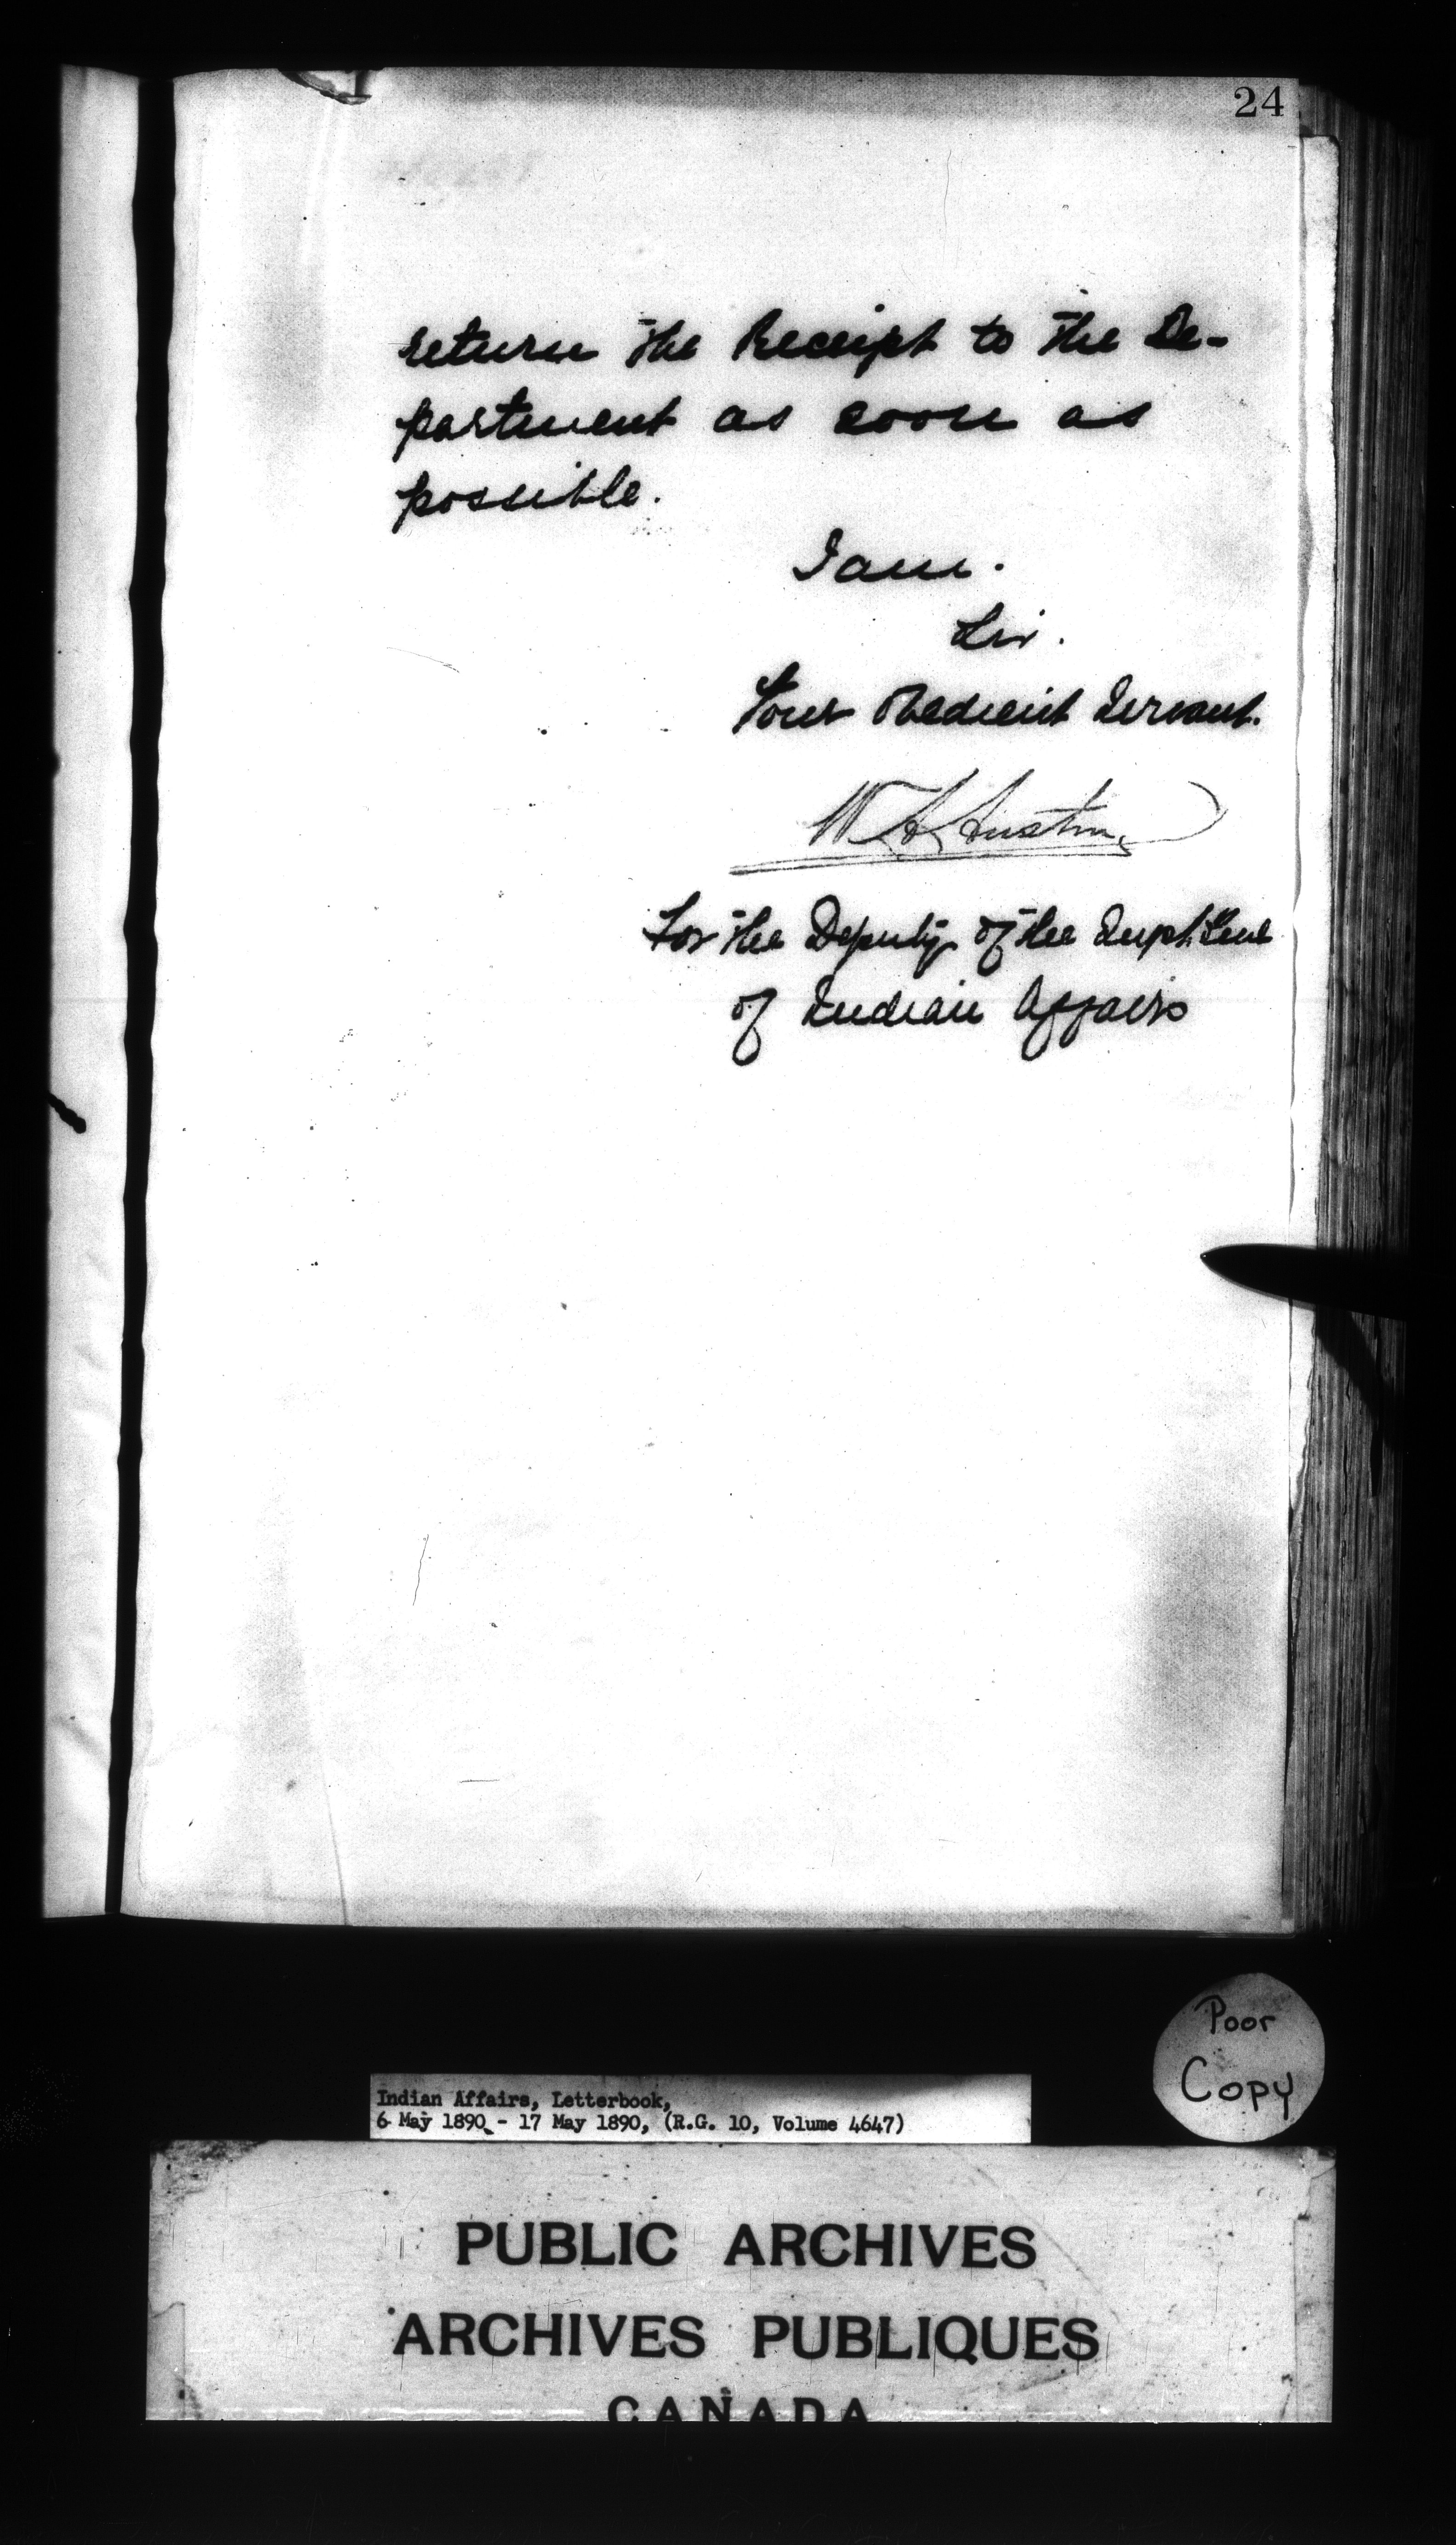 24
return the Receipt to the De-
partment as soon as
possible.
I am.
Sir.
Your Obedient Servant.
W A Austin
For the Deputy of the Supt. Genl
of Indian Affairs
Poor
Copy
Indian Affairs, Letterbook,
6 May 1890 - 17 May 1890, (R.G. 10, Volume 4647)
PUBLIC ARCHIVES
ARCHIVES PUBLIQUES
CANADA